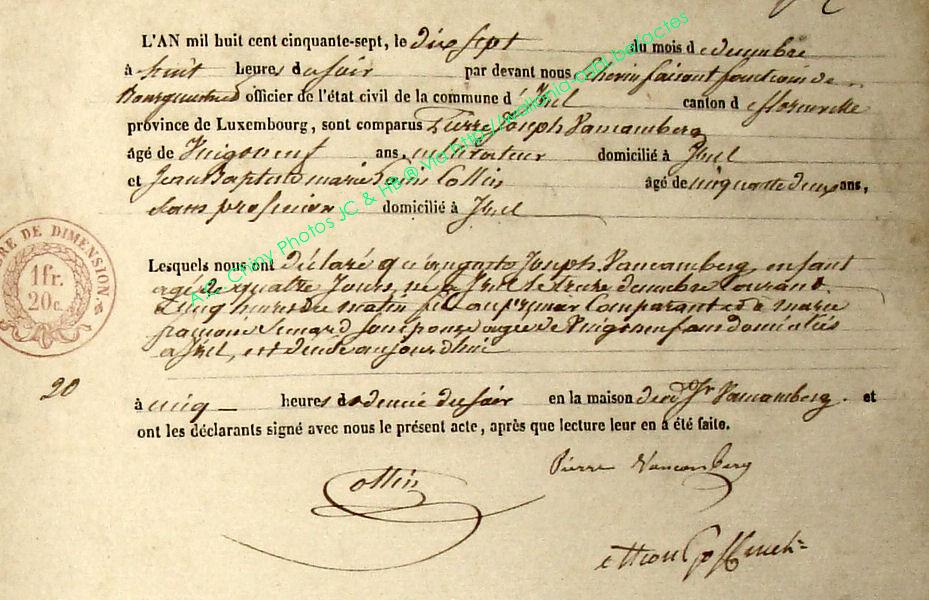 L'AN mil huit cent cinquante-sept, le dix sept du mois d e decembre
à huit heures du soir par devant nous faisant fonctions de
Bourguemestre officier de l'état civil de la commune d' Izel canton d e florenville
province de Luxembourg, sont comparus Pierre Joseph Vancamberg
âgé de Vingt neuf ans, cultivateur domicilié à Izel
et Jean Baptiste marie Collin âgé de cinquante deux ans,
sans profession domicilié à Izel
Lesquels nous ont déclaré qu'auguste Joseph Vancamberg, enfant
agé de quatre Jours, né à Izel le treize decembre courant
Cinq heures du matin fils au premier Comparant et à marie
son épouse agée de Vingt neuf ans domiciliés
à Izel, est décédé aujourd'hui
20
à cinq heures & demie du soir en la maison du dt Sr Vancamberg. et
ont les déclarants signé avec nous le présent acte, après que lecture leur en a été faite.
Collin
Pierre Vancamberg
RE DE DIMENSION.
1fr.
20c.
A.R. Chiny Photos JC & HB @ Via http://wallonia-asbl.be/actes